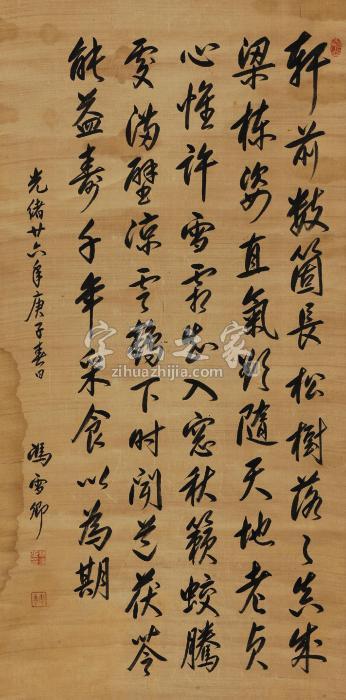 軒前數箇長松樹落々真成
梁棟姿直氣欲隨天地老貞
心惟許雪霜知入窓秋籟蛟騰
處滿壁涼雲鶴下时聞道茯苓
能益壽千年采食以為期
光緒廿六年庚子春日
馮雪卿
字画之家
zihuazhijia.com